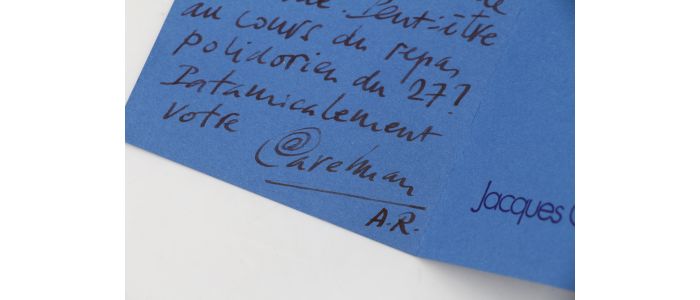 Peut-être
au cours du repas
polidorien du 27?
Patamicalement
votre
Carelman
A.R.
Jacques